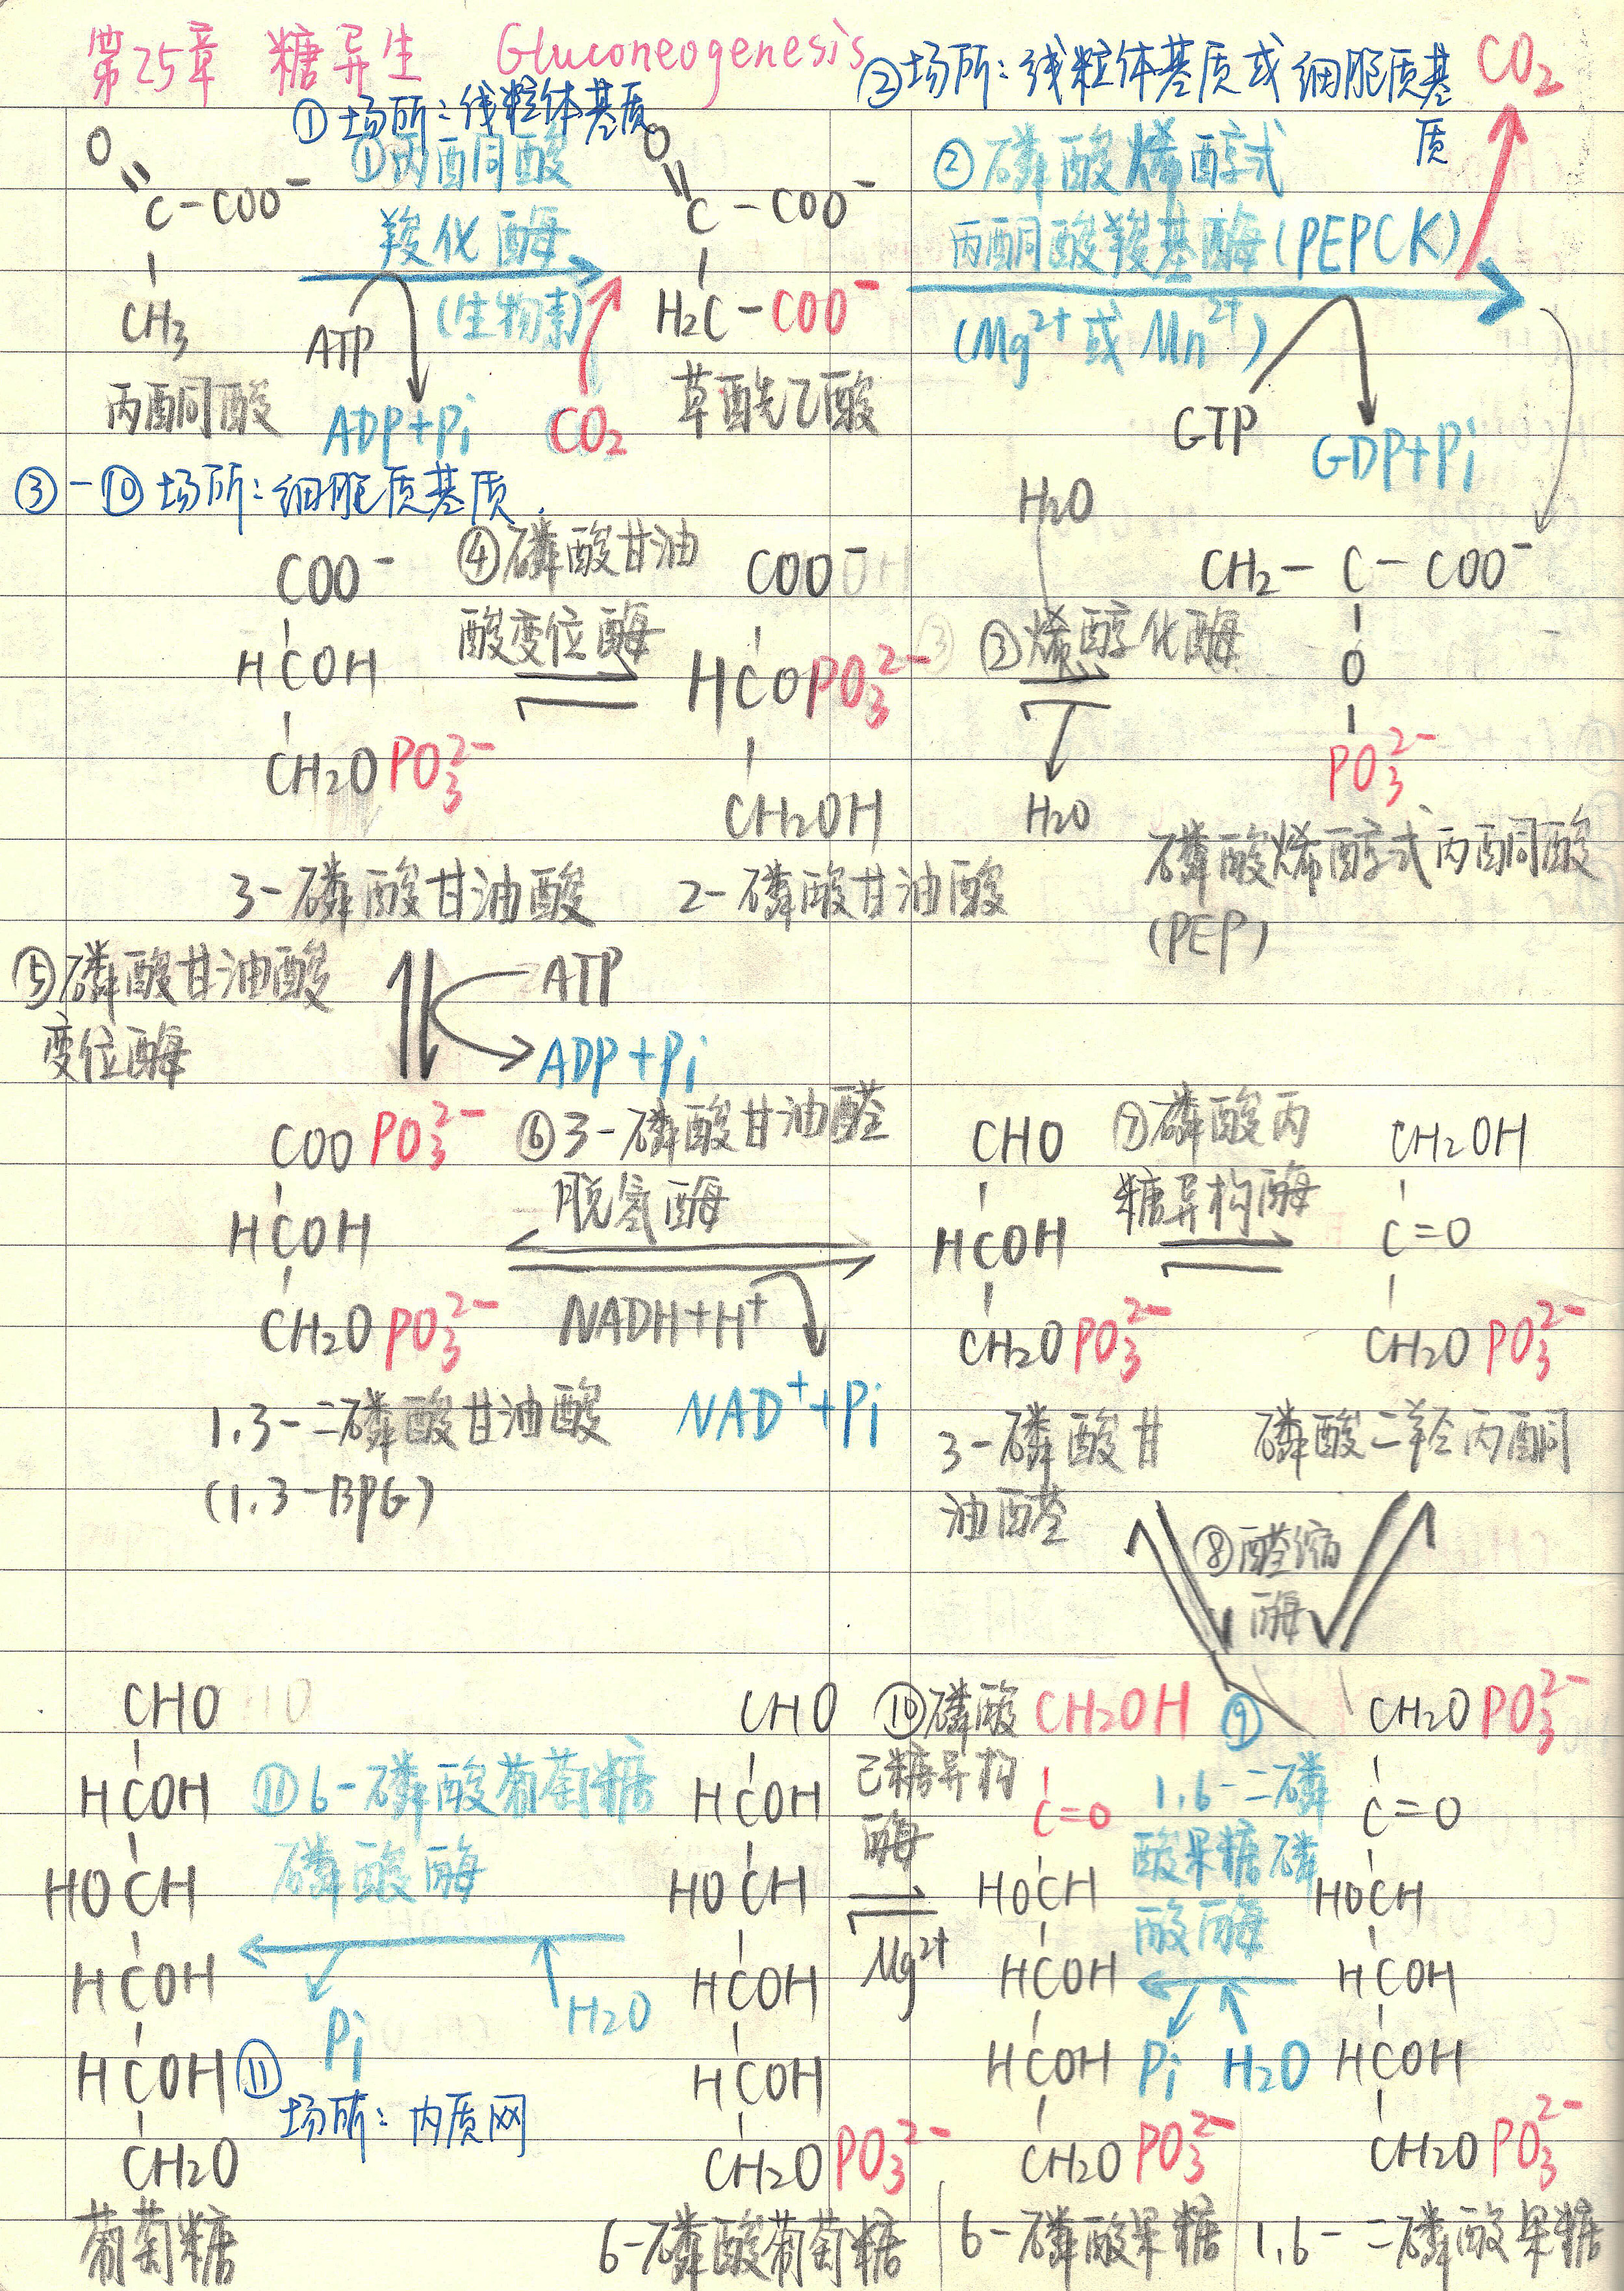 第25章 糖异生 Gluconeogenesis
①场所:线粒体基质
②场所:线粒体基质或细胞质基
质
CO₂
O
C-COO⁻
CH₃
丙酮酸
①丙酮酸
羧化酶
(生物素)
ATP
ADP+Pi
CO₂
O
C-COO⁻
H₂C-COO⁻
草酰乙酸
②磷酸烯醇式
丙酮酸羧基酶(PEPCK)
(Mg²⁺或Mn²⁺)
GTP
GDP+Pi
③-⑩场所:细胞质基质.
COO⁻
HCOH
CH₂OPO₃²⁻
3-磷酸甘油酸
④磷酸甘油
酸变位酶
COO⁻
HCOPO₃²⁻
CH₂OH
2-磷酸甘油酸
H₂O
③烯醇化酶
H₂O
CH₂-C-COO⁻
O
PO₃²⁻
磷酸烯醇式丙酮酸
(PEP)
⑤磷酸甘油酸
变位酶
ATP
ADP+Pi
COOPO₃²⁻
HCOH
CH₂OPO₃²⁻
1,3-二磷酸甘油酸
(1,3-BPG)
⑥3-磷酸甘油醛
脱氢酶
NADH+H⁺
NAD⁺+Pi
CHO
HCOH
CH₂OPO₃²⁻
3-磷酸甘
油醛
⑦磷酸丙
糖异构酶
CH₂OH
C=O
CH₂OPO₃²⁻
磷酸二羟丙酮
⑧醛缩
酶
CHO
HCOH
HOCH
HCOH
HCOH
CH₂O
葡萄糖
⑪6-磷酸葡萄糖
磷酸酶
Pi
H₂O
⑪
场所:内质网
CHO
HCOH
HOCH
HCOH
HCOH
CH₂OPO₃²⁻
6-磷酸葡萄糖
⑩磷酸
己糖异构
酶
Mg²⁺
CH₂OH
C=O
HOCH
HCOH
HCOH
CH₂OPO₃²⁻
6-磷酸果糖
⑨
1,6-二磷
酸果糖磷
酸酶
Pi
H₂O
CH₂OPO₃²⁻
C=O
HOCH
HCOH
HCOH
CH₂OPO₃²⁻
1,6-二磷酸果糖